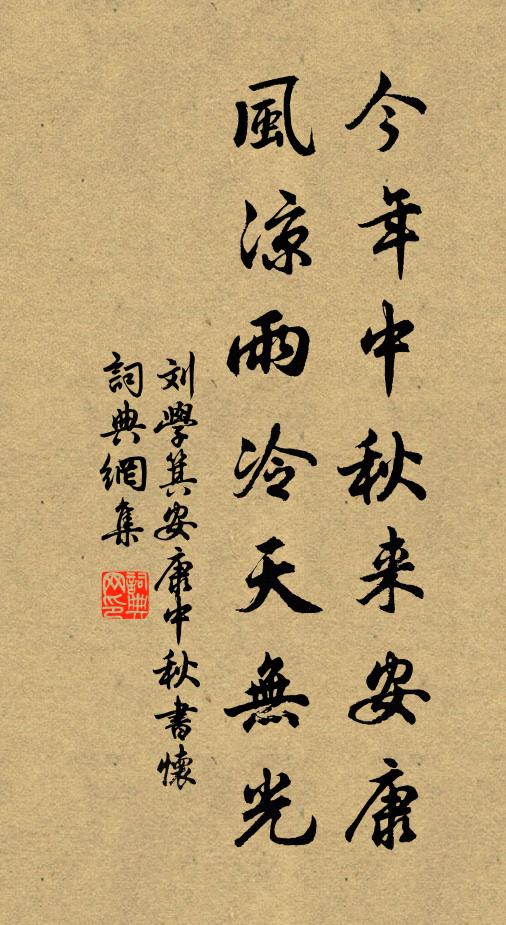 今年中秋来安康
風涼雨冷天無光
刘學箕安康中秋書懷
詞典網集
詞典网印